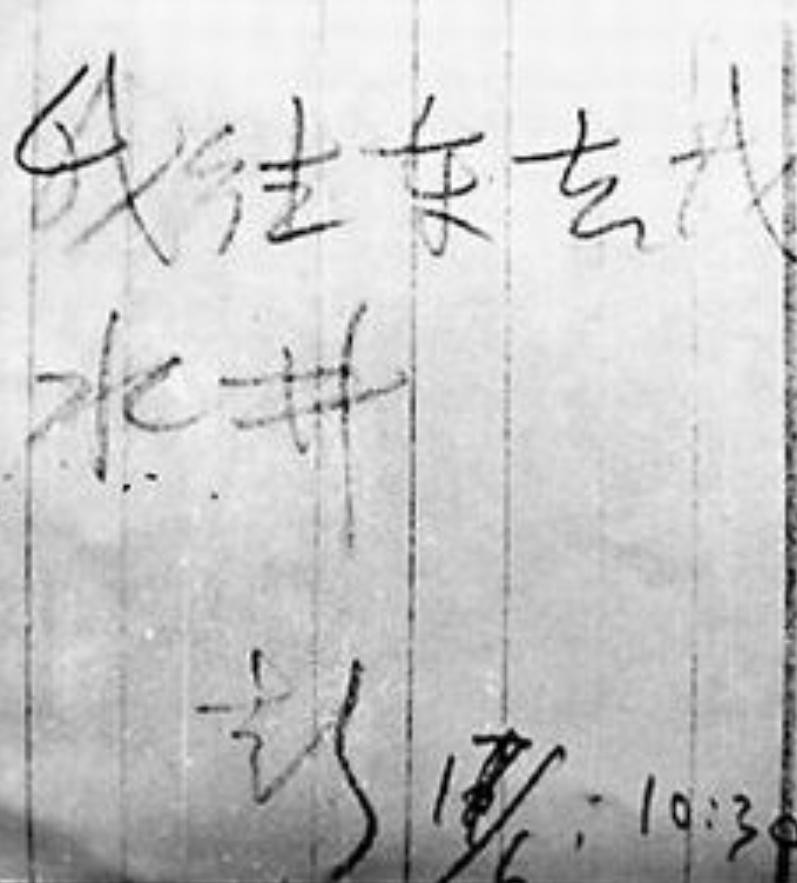 我往东去找
水井
彭
17/6 10:30